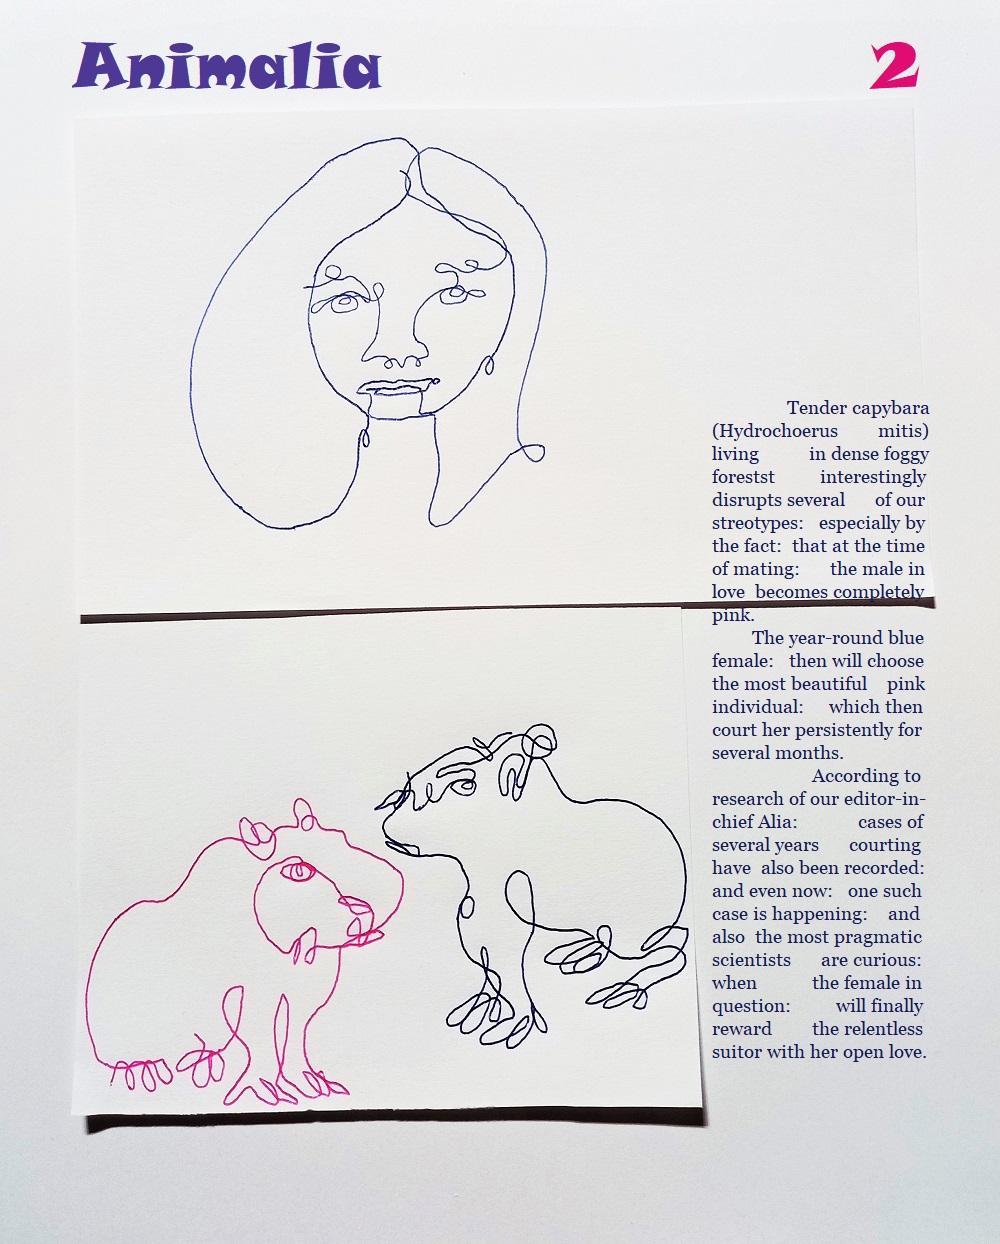 Animalia
2
Tender capybara
(Hydrochoerus mitis)
living in dense foggy
forestst interestingly
disrupts several of our
streotypes: especially by
the fact: that at the time
of mating: the male in
love becomes completely
pink.
The year-round blue
female: then will choose
the most beautiful pink
individual: which then
court her persistently for
several months.
According to
research of our editor-in-
chief Alia: cases of
several years courting
have also been recorded:
and even now: one such
case is happening: and
also the most pragmatic
scientists are curious:
when the female in
question: will finally
reward the relentless
suitor with her open love.